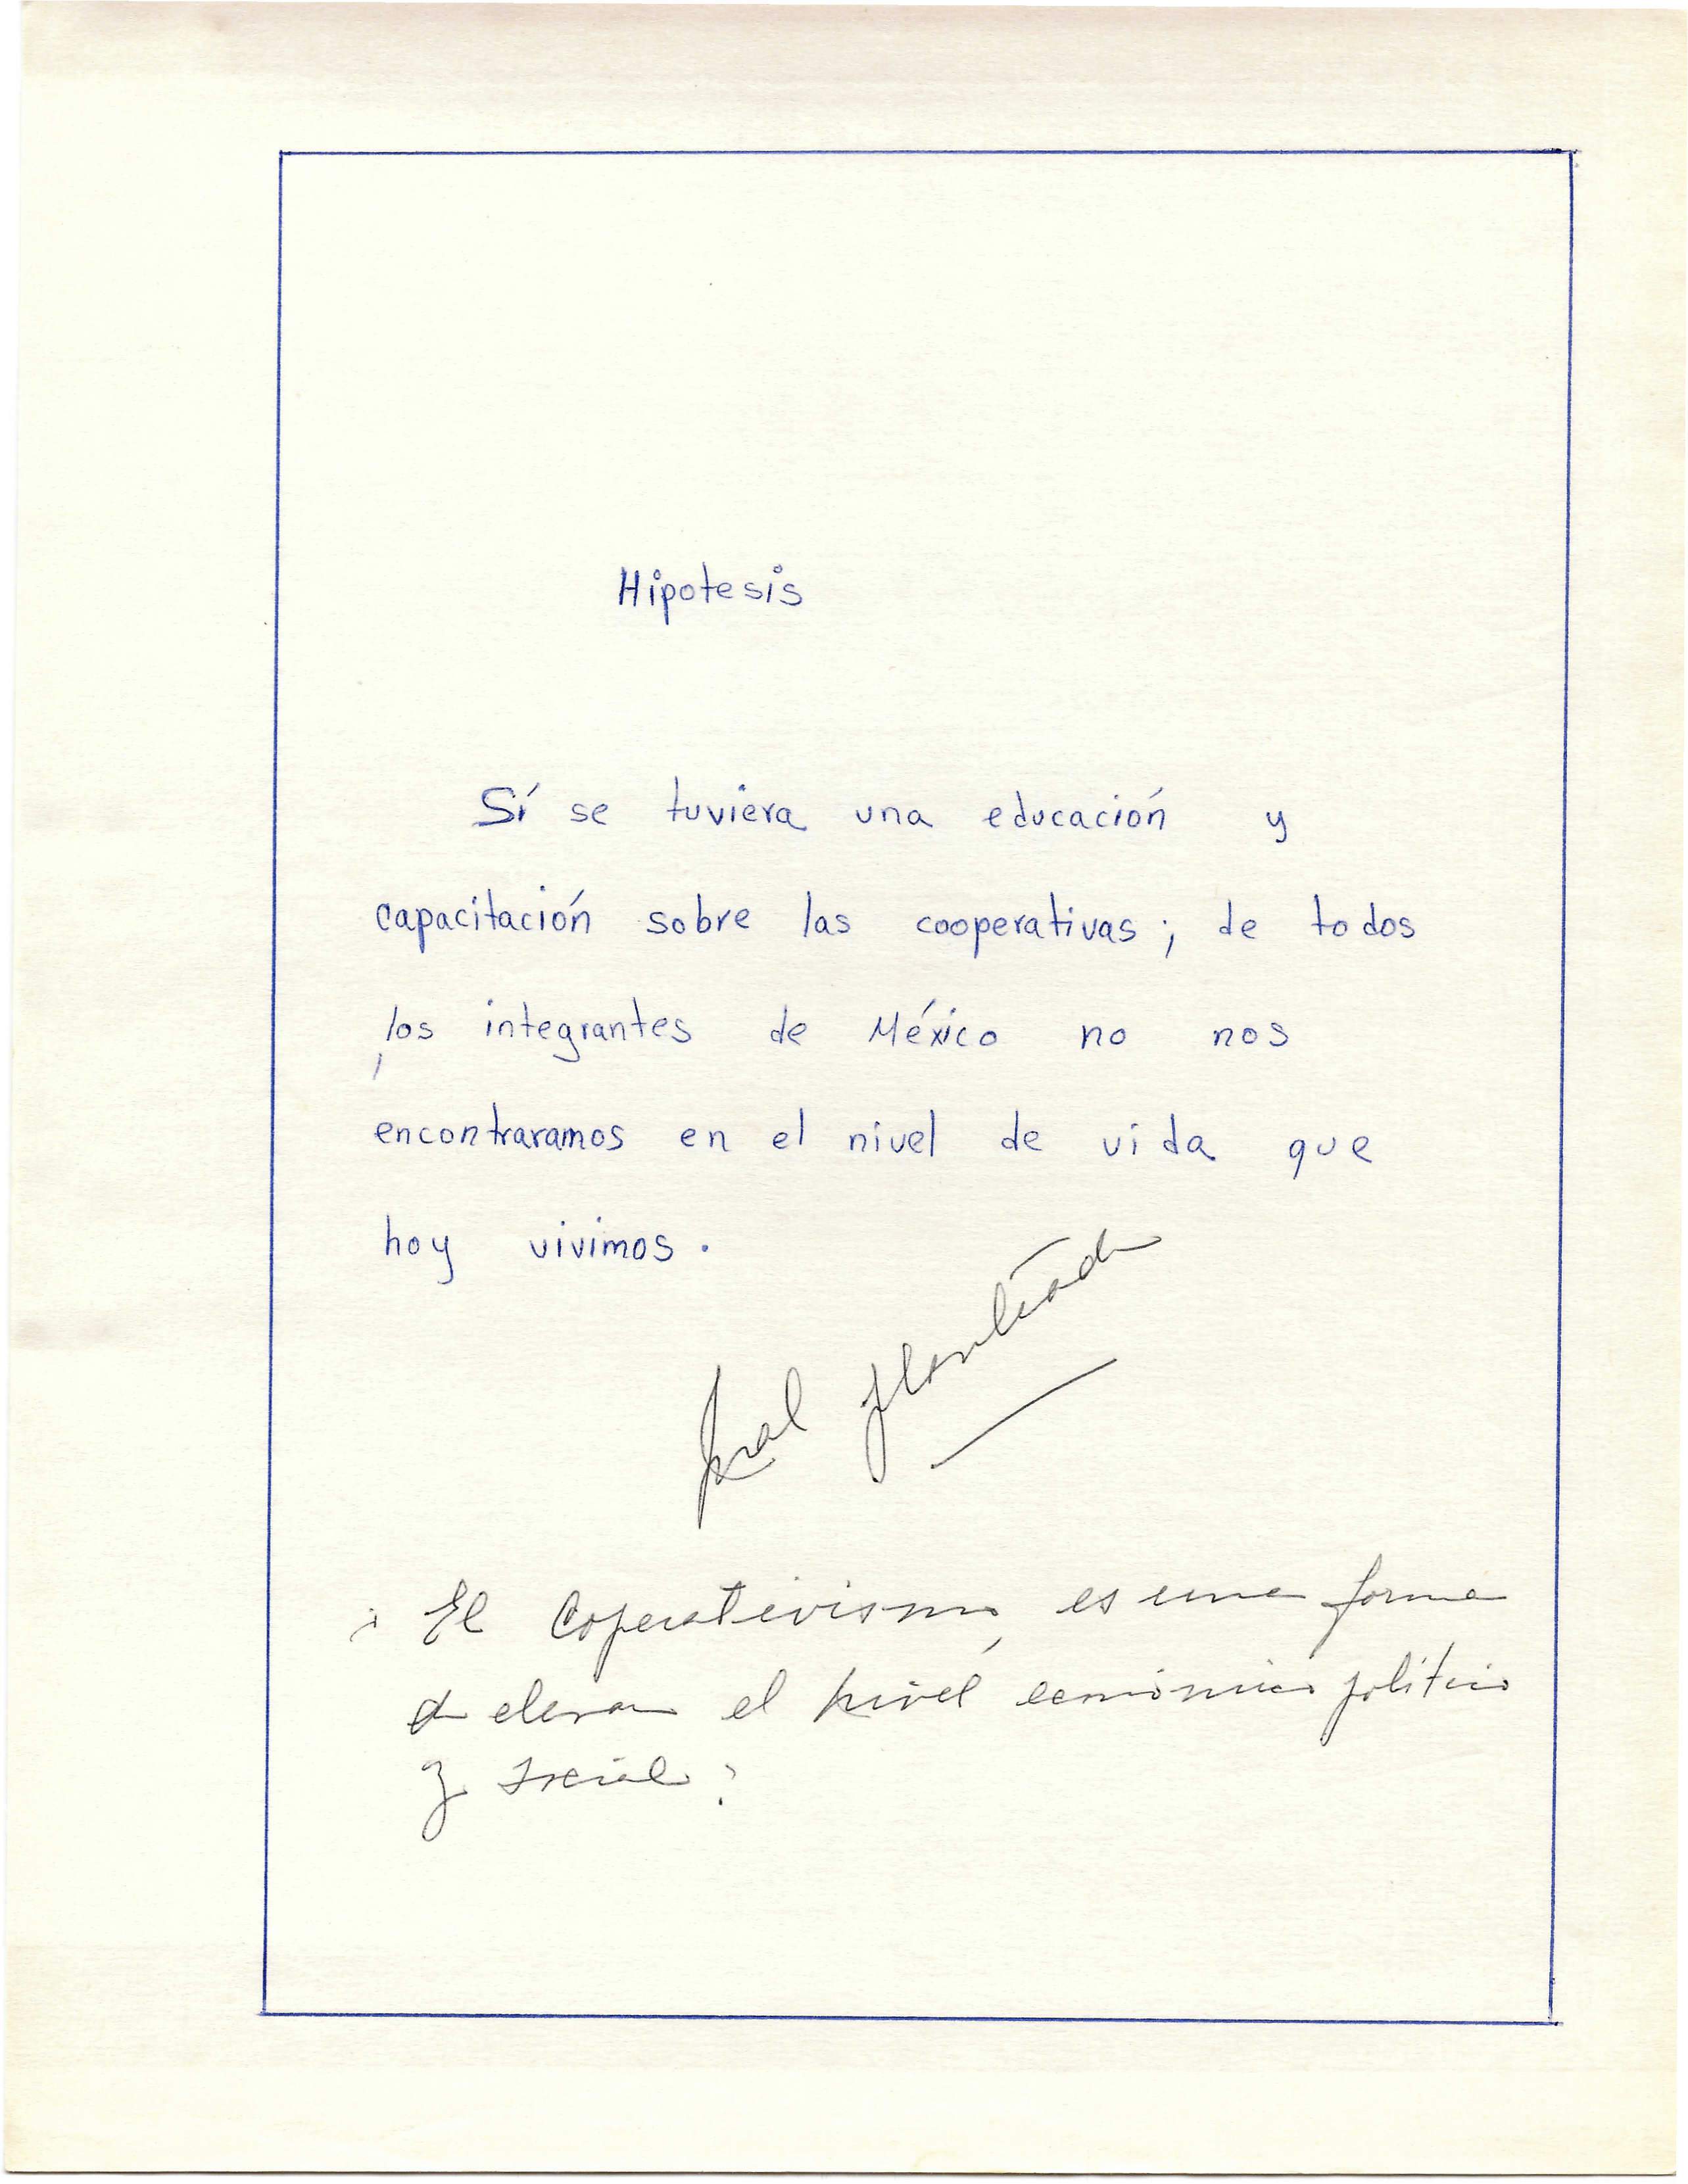 Hipotesis
Sí se tuviera una educación y
capacitación sobre las cooperativas; de todos
los integrantes de México no nos
encontraramos en el nivel de vida que
hoy vivimos.
mal planteada
¿ El Coperativismo, es una forma
de elevar el nivel económico político
y social?